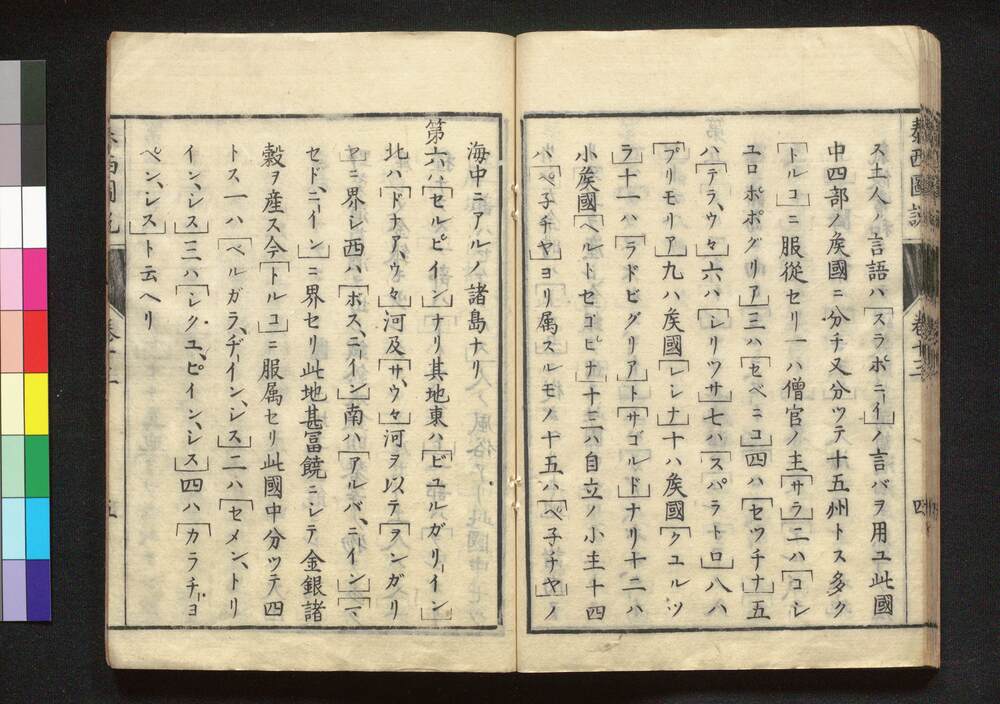 泰西圖說
卷十三
四
ス土人ノ言語ハ「スラポニーイ」ノ言バヲ用ユ此國
中四部ノ矦國ニ分チ又分ツテ十五州トス多ク
「トルコ」ニ服從セリ一ハ僧官ノ主「サラ」二ハ「コレ
ユロポポグリア」三ハ「セベニコ」四ハ「セツチナ」五
ハ「テラ、ウ々」六ハ「レリツサ」七ハ「スパラトロ」八ハ
「プリモリア」九ハ矦國「レシナ」十ハ矦國「クユルツ
ラ」十一ハ「ラドビグリアト」「サゴルド」ナリ十二ハ
小矦國「ヘルトセゴビナ」十三ハ自立ノ小圭十四
ハ「ペ子チヤ」ヨリ属スルモノ十五ハ「ペ子チヤ」ノ
海中ニアルノ諸島ナリ
第六ハ「セルピイン」ナリ其地東ハ「ビユルガリーイン」
北ハ「ドナア、ウ々」河及「サウ、ウ々」河ヲ以テ「ヲンガリ
ヤ」ニ界シ西ハ「ボス、ニーイン」南ハ「アルバ、ニイン」「マ
セド、ニイン」ニ界セリ此地甚冨饒ニシテ金銀諸
穀ヲ産ス今「トルコ」ニ服属セリ此國中分ツテ四
トス一ハ「ベルガラ、ヂーイン、シス」二ハ「セメン、トリ
イン、シス」三ハ「シクユ、ピイン、シス」四ハ「カラチヨ
ペン、シス」ト云ヘリ
五